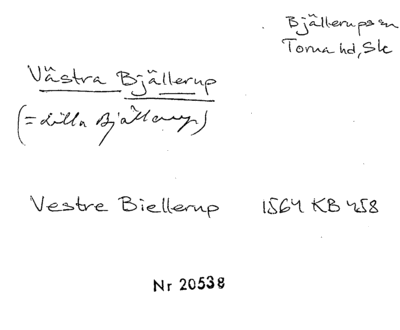 Bjällerups sn
Torna hd, Sk
Västra Bjällerup
(= Lilla Bjällerup)
Vestre Biellerup 1564 KB 458
Nr 20538